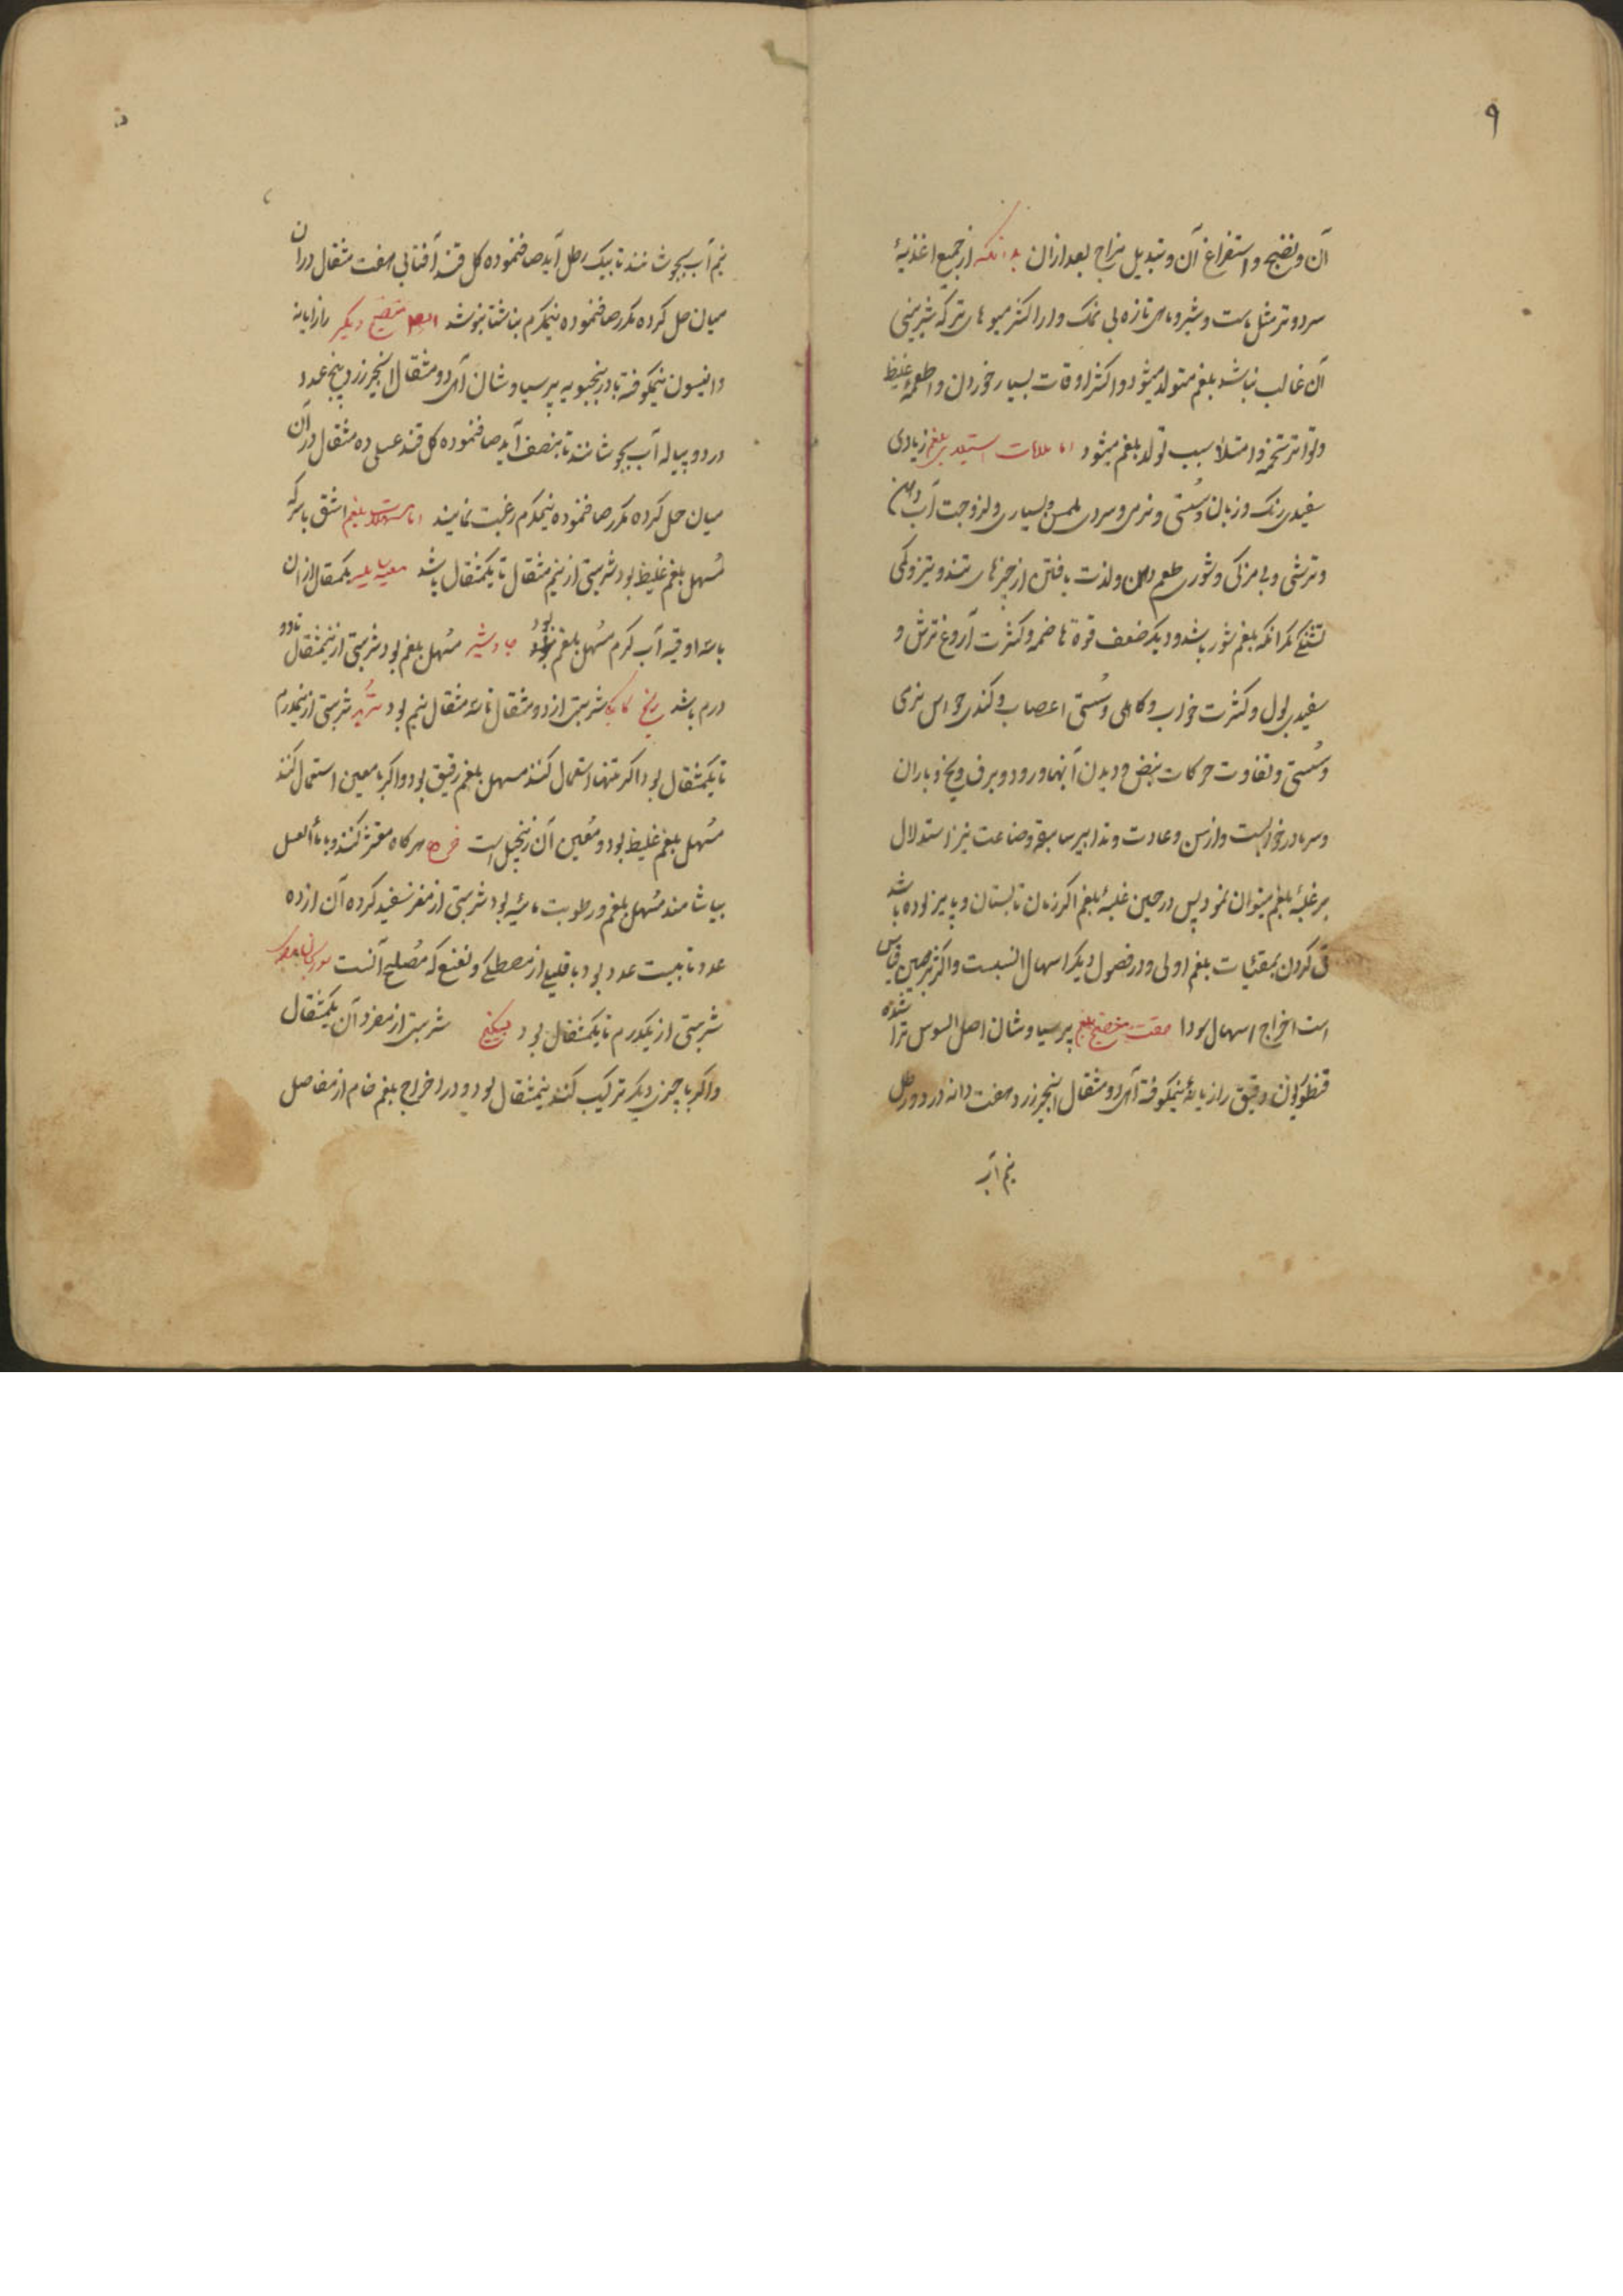 ۹
آن و نضج و استفراغ آن و تبدیل مزاج بعد ازان بدانکه از جمیع اغذیهٔ
سرد و تر مثل ماست و شیر و ماهی تازه بی نمک و از اکثر میوهای تر که شیرینی
آن غالب نباشد بلغم متولد میشود و اکثر اوقات بسیار خوردن و اطعمهٔ غلیظ
و تواتر تخمه و امتلا سبب تولد بلغم میشود اما علامات استیلای بلغم زیادی
سفیدی رنک و زبان و سستی و نرمی و سردی ملمس و بسیاری و لزوجت آب دهن
و ترشی و بی مزکی و شوری طعم دهن و لذت یافتن از چیزهای تند و تیز و کمی
تشنکی مکر انکه بلغم شور باشد و دیکر ضعف قوة هاضمه و کثرت آروغ ترش و
سفیدی بول و کثرت خواب و کاهلی و سستی اعصاب و کندی حواس نرمی
و سستی و تفاوت حرکات نبض و دیدن آبها و رود و برف و یخ و باران
و سرما در خوابست و از سن و عادت و تدابیر سابقه و صناعت نیز استدلال
بر غلبهٔ بلغم میتوان نمود پس در حین غلبهٔ بلغم اکر زمان تابستان و پاییز بوده باشد
قی کردن بمقئیات بلغم اولی و در فصول دیکر اسهال انسبست و اکثر برهمین قیاس
است اخراج اسهال سودا صفت منضج بلغم پرسیاوشان اصل السوس تراشیده
قنطوریون دقیق رازیانهٔ نیمکوفته از هر یک دو مثقال انجیر زرد هفت دانه در دو رطل
نیم آب
نیم آب بجوشانند تا بیک رطل آید صاف نموده کل قند آفتابی هفت مثقال دران
میان حل کرده مکرر صاف نموده نیمکرم بناشتا بنوشد ایضا منضج دیکر رازیانه
و انیسون نیمکوفته بادرنجبویه پرسیاوشان از هر یک دو مثقال انجیر زرد پنج عدد
در دو پیاله آب بجوشانند تا بنصف آید صاف نموده کل قند عسلی ده مثقال درآن
میان حل کرده مکرر صاف نموده نیمکرم رغبت نمایند اما مسهلات بلغم اشق با سرکه
مسهل بلغم غلیظ بود شربتی از نیم مثقال تا یکمثقال باشد یکمثقال ازان
با سه اوقیه آب کرم مسهل بلغم بود جاوشیر مسهل بلغم بود شربتی از نیمثقال تا دو
درم باشد شربتی از دو مثقال تا سه مثقال نیم بود تربد شربتی از نیمدرم
تا یکمثقال بود اکر تنها استعمال کنند مسهل بلغم رقیق بود و اکر با معین استعمال کنند
مسهل بلغم غلیظ بود و معین آن زنجبیل است هرکاه مقشر کنند و با ماء العسل
بیاشامند مسهل بلغم و رطوبت مائیه بود شربتی از مغز سفید کرده آن از ده
عدد تا بیست عدد بود با قلیلی از مصطکی و نعنع که مصلح آنست
شربتی از یکدرم تا یکمثقال بود سکبینج شربتی از مفرد آن یکمثقال
و اکر با چیزی دیکر ترکیب کنند نیمثقال بود و در اخراج بلغم خام از مفاصل